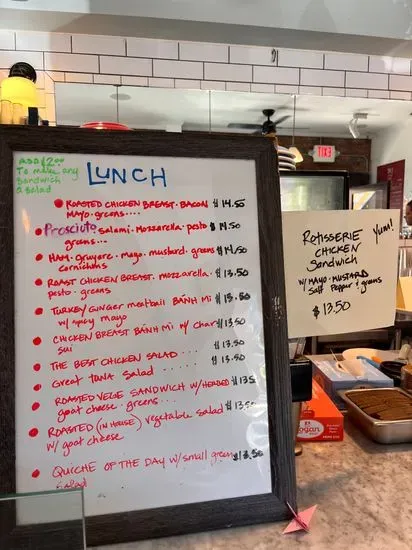 ADD $2.00
To make any
sandwich
a salad
LUNCH
ROASTED CHICKEN BREAST. BACON $14.55
MAYO. greens....
Prosciuto Salami. Mozzarella. pesto $14.50
greens...
HAM. Gruyere. mayo. mustard. greens $14.50
cornichons
ROAST CHICKEN BREAST. mozzarella. $13.50
pesto. greens
TURKEY GINGER meatball BÁNH MI $13.50
w/ spicy mayo
CHICKEN BREAST BÁNH MI w/ char $13.50
sui
THE BEST CHICKEN SALAD .... $13.50
Great TUNA Salad ..... $13.50
ROASTED VEGE SANDWICH w/ HERBED $135
goat cheese. greens...
ROASTED (IN HOUSE) vegetable salad $13.50
w/ goat cheese
QUICHE OF THE DAY w/ small green $13.50
Salad
Yum!
ROTISSERIE
CHICKEN
Sandwich
W/ MAYO. MUSTARD
Salt Pepper & greens
$13.50
EXIT